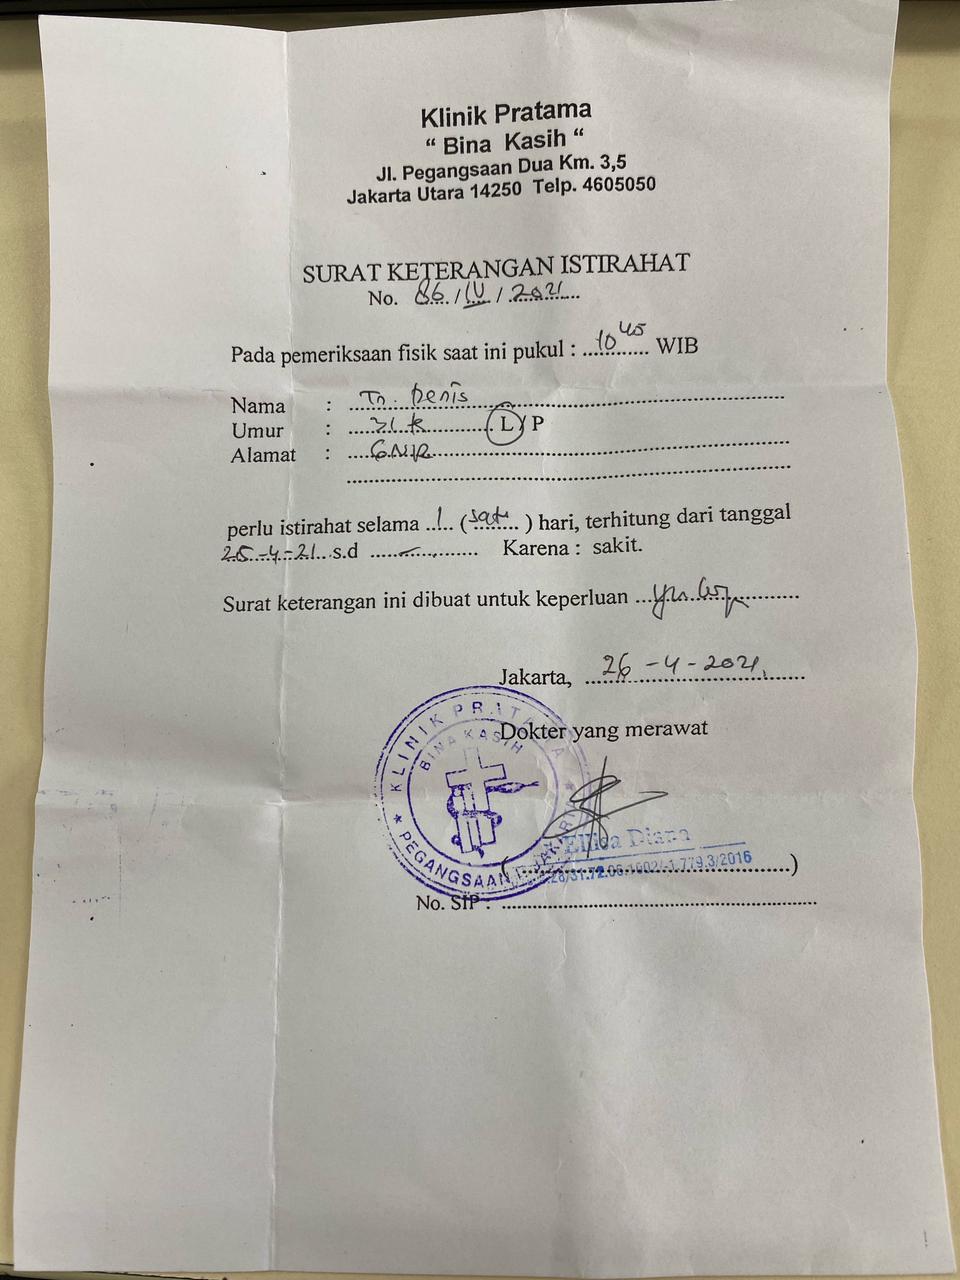 Klinik Pratama
“ Bina Kasih “
Jl. Pegangsaan Dua Km. 3,5
Jakarta Utara 14250 Telp. 4605050
SURAT KETERANGAN ISTIRAHAT
No. 86/IV/2021
Pada pemeriksaan fisik saat ini pukul : 10 45 WIB
Nama : Tn. Denis
Umur : L/P
Alamat :
perlu istirahat selama 1 (satu) hari, terhitung dari tanggal
25-4-21 s.d Karena : sakit.
Surat keterangan ini dibuat untuk keperluan
Jakarta, 26-4-2021
Dokter yang merawat
KLINIK PRATAMA
BINA KASIH
PEGANGSAAN
Ellisa Diana
No. SIP :